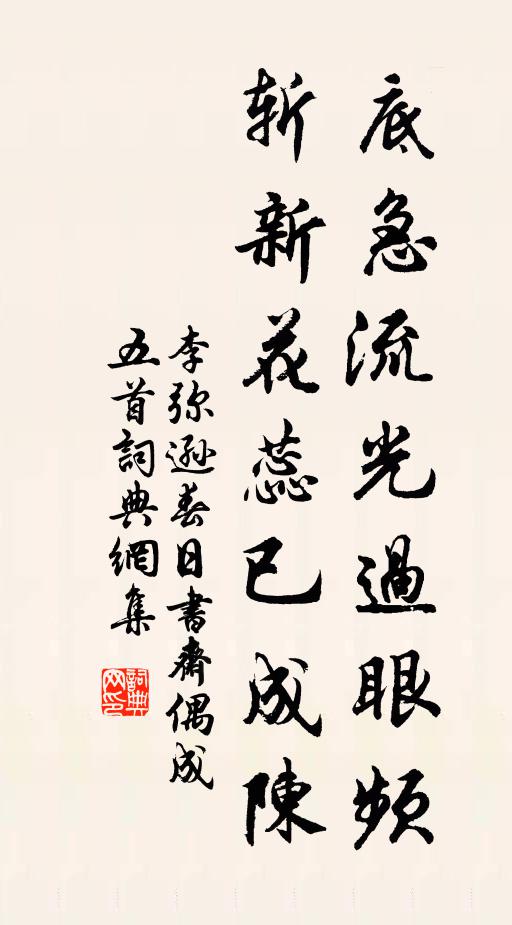 底急流光過眼頻
斬新花蕊已成陳
李弥遜春日書齋偶成
五首詞典網集
詞典網印